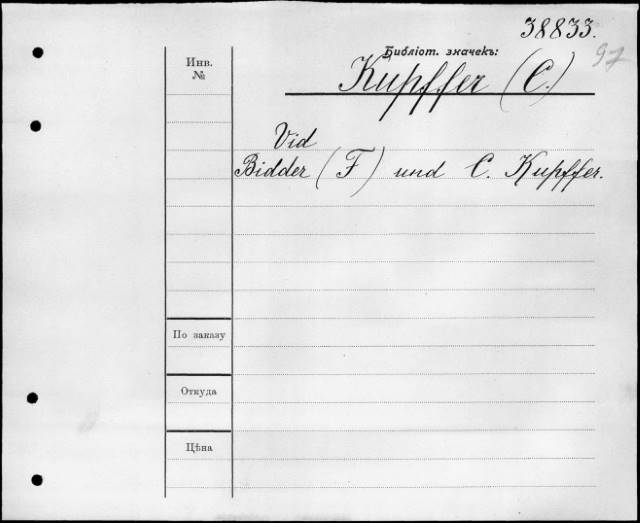 38833.
97
Библіот. значекъ:
Инв.
№
Kupffer (C.)
Vid
Bidder (F) und C. Kupffer.
По заказу
Откуда
Цѣна